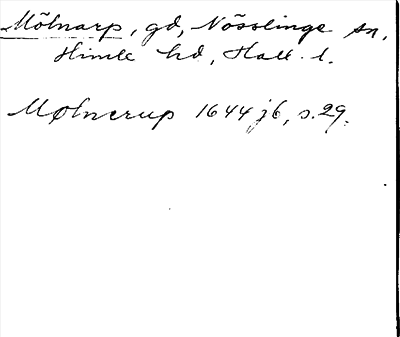 Mölnarp, gd, Nösslinge sn,
Himle hd, Hall. l.
Mølnerup 1644 jb, s. 29.